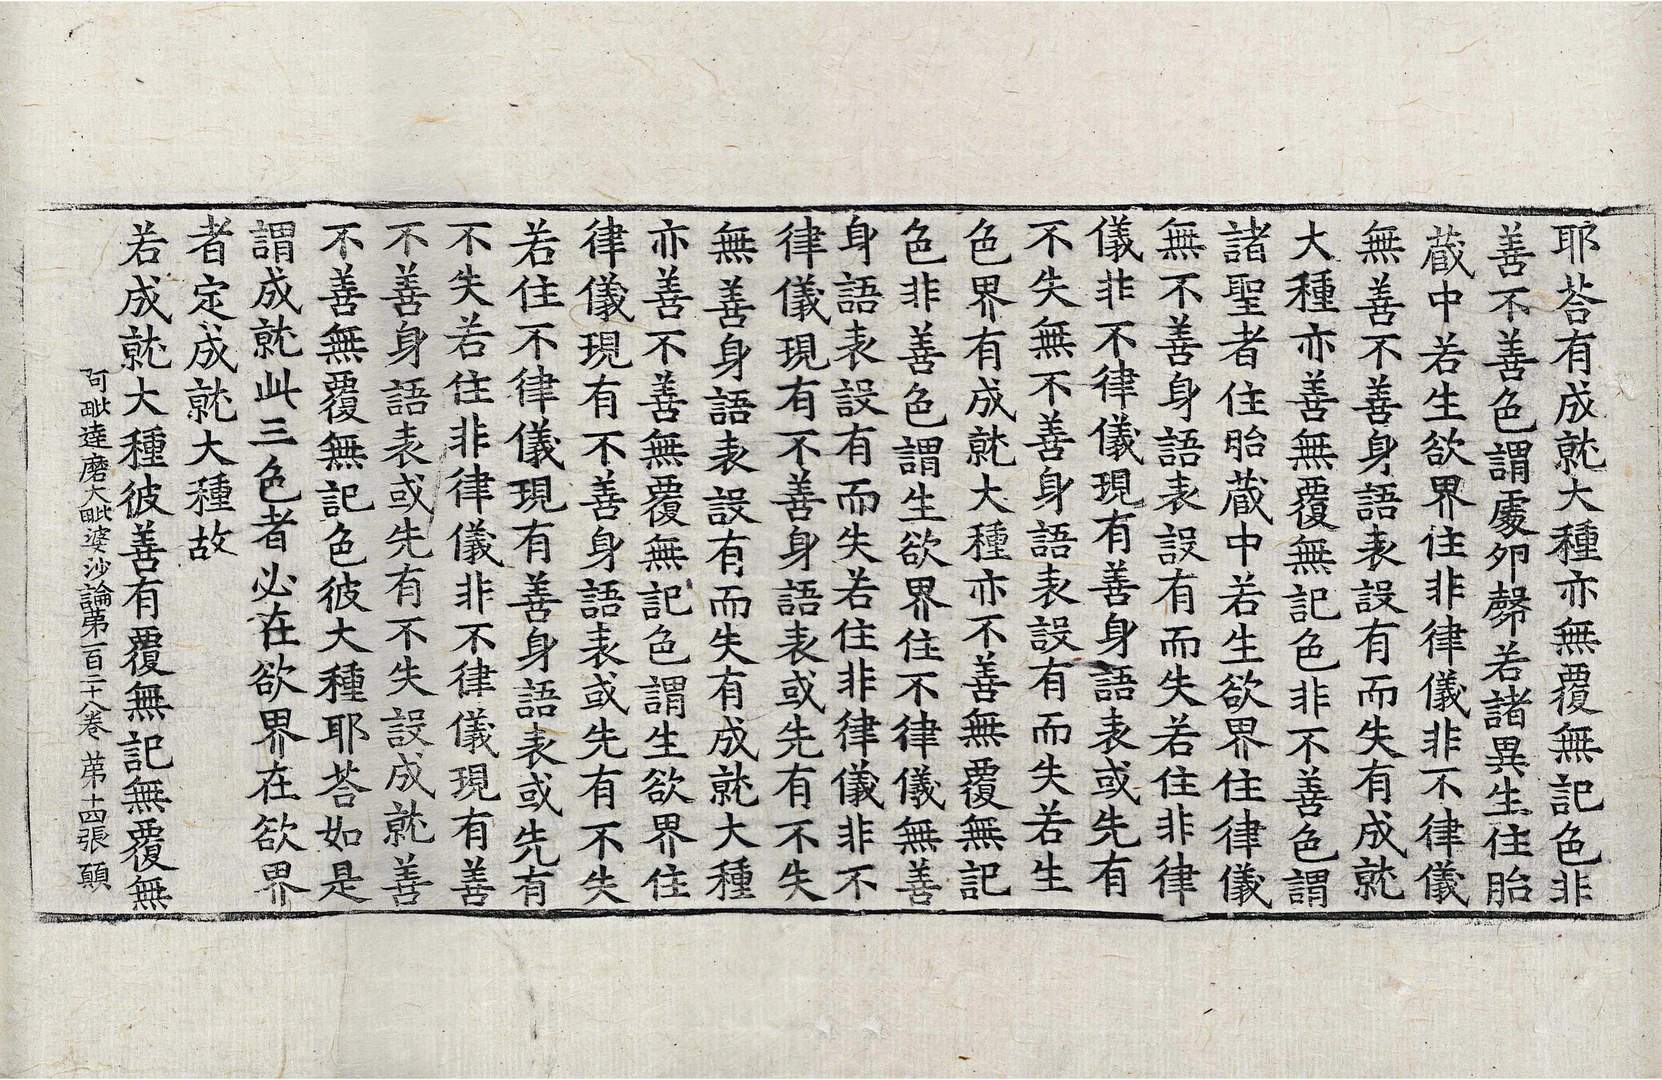 耶荅有成就大種亦無覆無記色非
善不善色謂處卵㲉若諸異生住胎
蔵中若生欲界住非律儀非不律儀
無善不善身語表設有而失有成就
大種亦善無覆無記色非不善色謂
諸聖者住胎蔵中若生欲界住律儀
無不善身語表設有而失若住非律
儀非不律儀現有善身語表或先有
不失無不善身語表設有而失若生
色界有成就大種亦不善無覆無記
色非善色謂生欲界住不律儀無善
身語表設有而失若住非律儀非不
律儀現有不善身語表或先有不失
無善身語表設有而失有成就大種
亦善不善無覆無記色謂生欲界住
律儀現有不善身語表或先有不失
若住不律儀現有善身語表或先有
不失若住非律儀非不律儀現有善
不善身語表或先有不失設成就善
不善無覆無記色彼大種耶荅如是
謂成就此三色者必在欲界在欲界
者定成就大種故
若成就大種彼善有覆無記無覆無
阿毗達磨大毗婆沙論苐一百二十八卷 苐十四張 顚